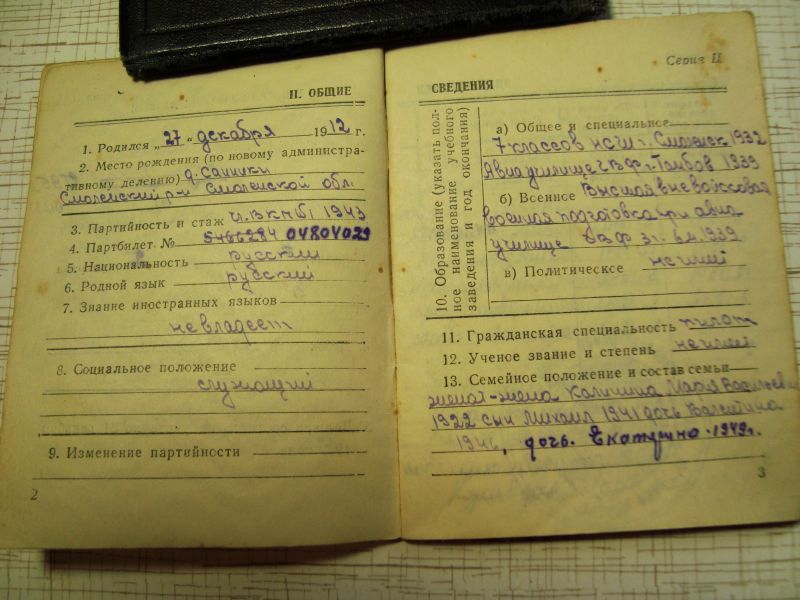 II. ОБЩИЕ
1. Родился „27„ декабря 1912 г.
2. Место рождения (по новому администра-
тивному делению) д.
Смоленский р-н Смоленской обл.
3. Партийность и стаж чл. ВКП(б) 1943
4. Партбилет. № 5466284 04804029
5. Национальность русский
6. Родной язык русский
7. Знание иностранных языков
не владеет
8. Социальное положение
служащий
9. Изменение партийности
2
Серия II
СВЕДЕНИЯ
10. Образование (указать пол-
ное наименование учебного
заведения и год окончания)
а) Общее и специальное
7 классов г. Смоленск 1932
Авиаучилище ГВФ г. Тамбов 1939
б) Военное Высшая вневойсковая
военная подготовка при авиа
училище ГВФ 1939
в) Политическое не имеет
11. Гражданская специальность пилот
12. Ученое звание и степень не имеет
13. Семейное положение и состав семьи
женат-жена Калинина Мария Васильевна
1922 сын Михаил 1941 дочь Валентина
1946, дочь. Екатерина 1949г.
3